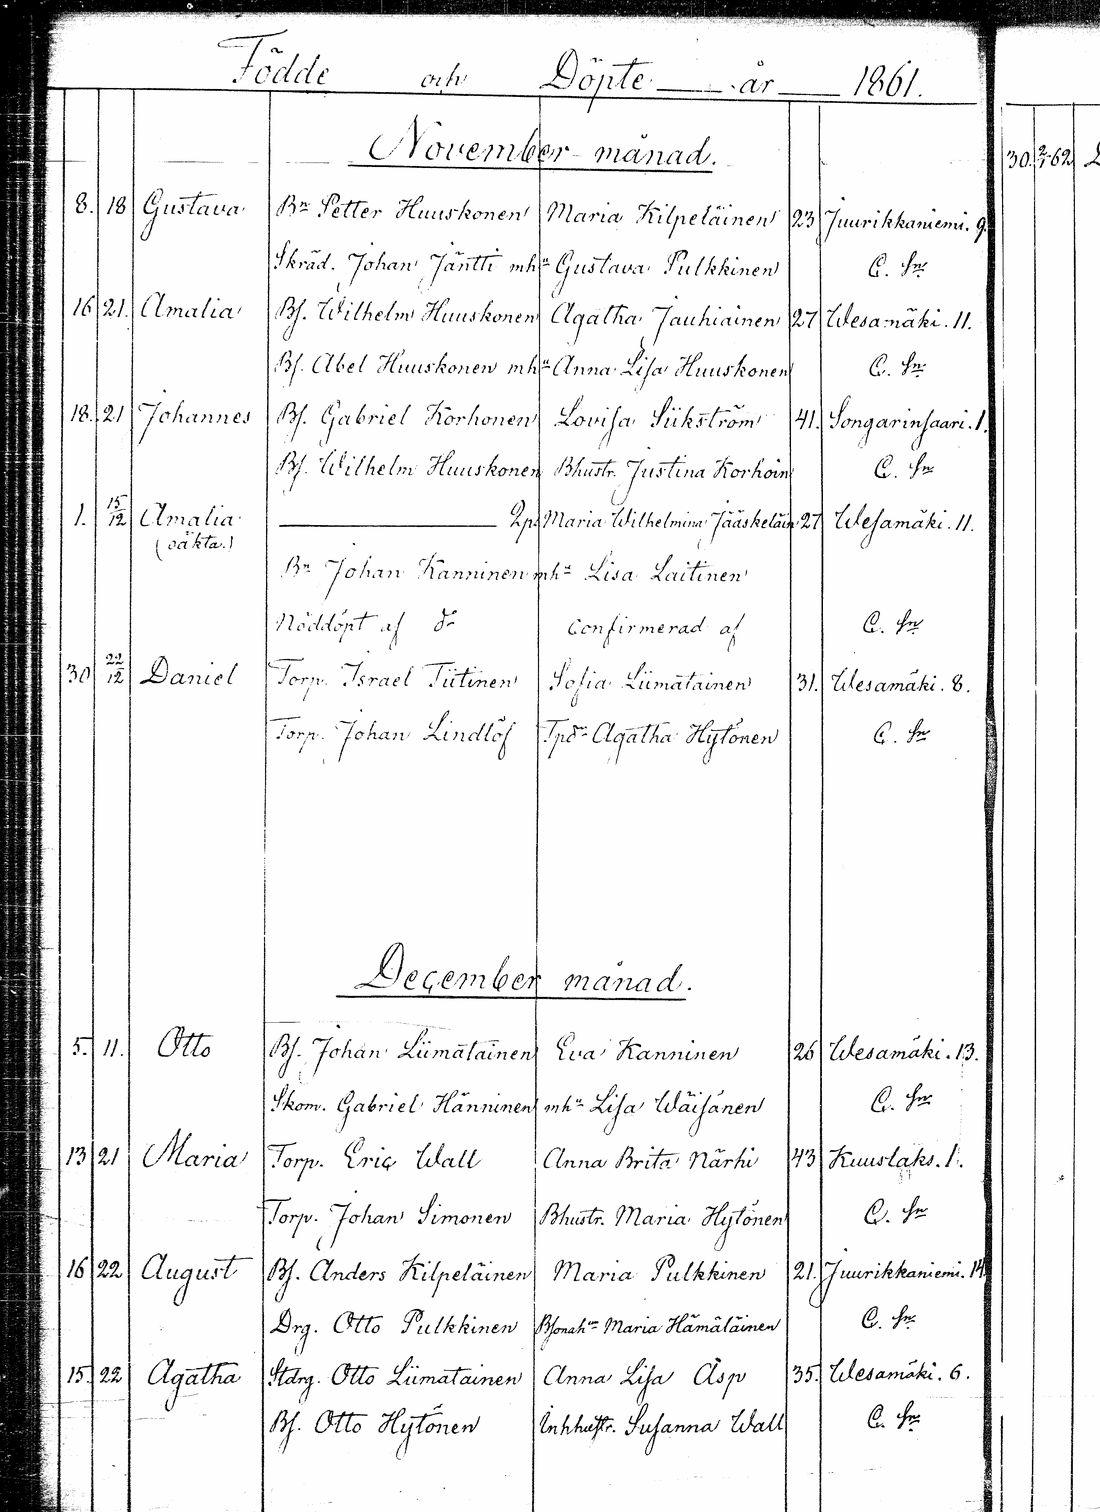 Födde och Döpte år 1861.
November månad.
30. 2/1 62
8. 18 Gustava Bn Petter Huuskonen Maria Kilpeläinen 23 Juurikkaniemi. 9.
Skräd. Johan Jäntti mhu Gustava Pulkkinen C. Sn
16 21. Amalia Bf. Wilhelm Huuskonen Agatha Jauhiainen 27 Wesamäki. 11.
Bf. Abel Huuskonen mhu Anna Lisa Huuskonen C. Sn
18. 21 Johannes Bf. Gabriel Korhonen Lovisa Siikström 41. Songarinsaari. 1.
Bf. Wilhelm Huuskonen Bhustr. Justina Korhoin C. Sn
1. 15/12 Amalia 2p. Maria Wilhelmina Jääskeläin 27 Wesamäki. 11.
(oäkta.)
Bn Johan Kanninen mha Lisa Laitinen
Nöddöpt af dr Confirmerad af C. Sn
30 22/12 Daniel Torp. Israel Tiitinen Sofia Liimatainen 31. Wesamäki. 8.
Torp. Johan Lindlöf Tpdr Agatha Hytönen C. Sn
December månad.
5. 11. Otto Bf. Johan Liimatainen Eva Kanninen 26 Wesamäki. 13.
Skom. Gabriel Hänninen mhu Lisa Wäisänen C. Sn
13 21 Maria Torp. Eric Wall Anna Brita Närhi 43 Kuuslaks. 1.
Torp. Johan Simonen Bhustr. Maria Hytönen C. Sn
16 22 August Bf. Anders Kilpeläinen Maria Pulkkinen 21. Juurikkaniemi. 14
Drg. Otto Pulkkinen Maria Hämäläinen C. Sn
15. 22 Agatha Stdrg. Otto Liimatainen Anna Lisa Asp 35. Wesamäki. 6.
Bf. Otto Hytönen Inhhustr. Susanna Wall C. Sn